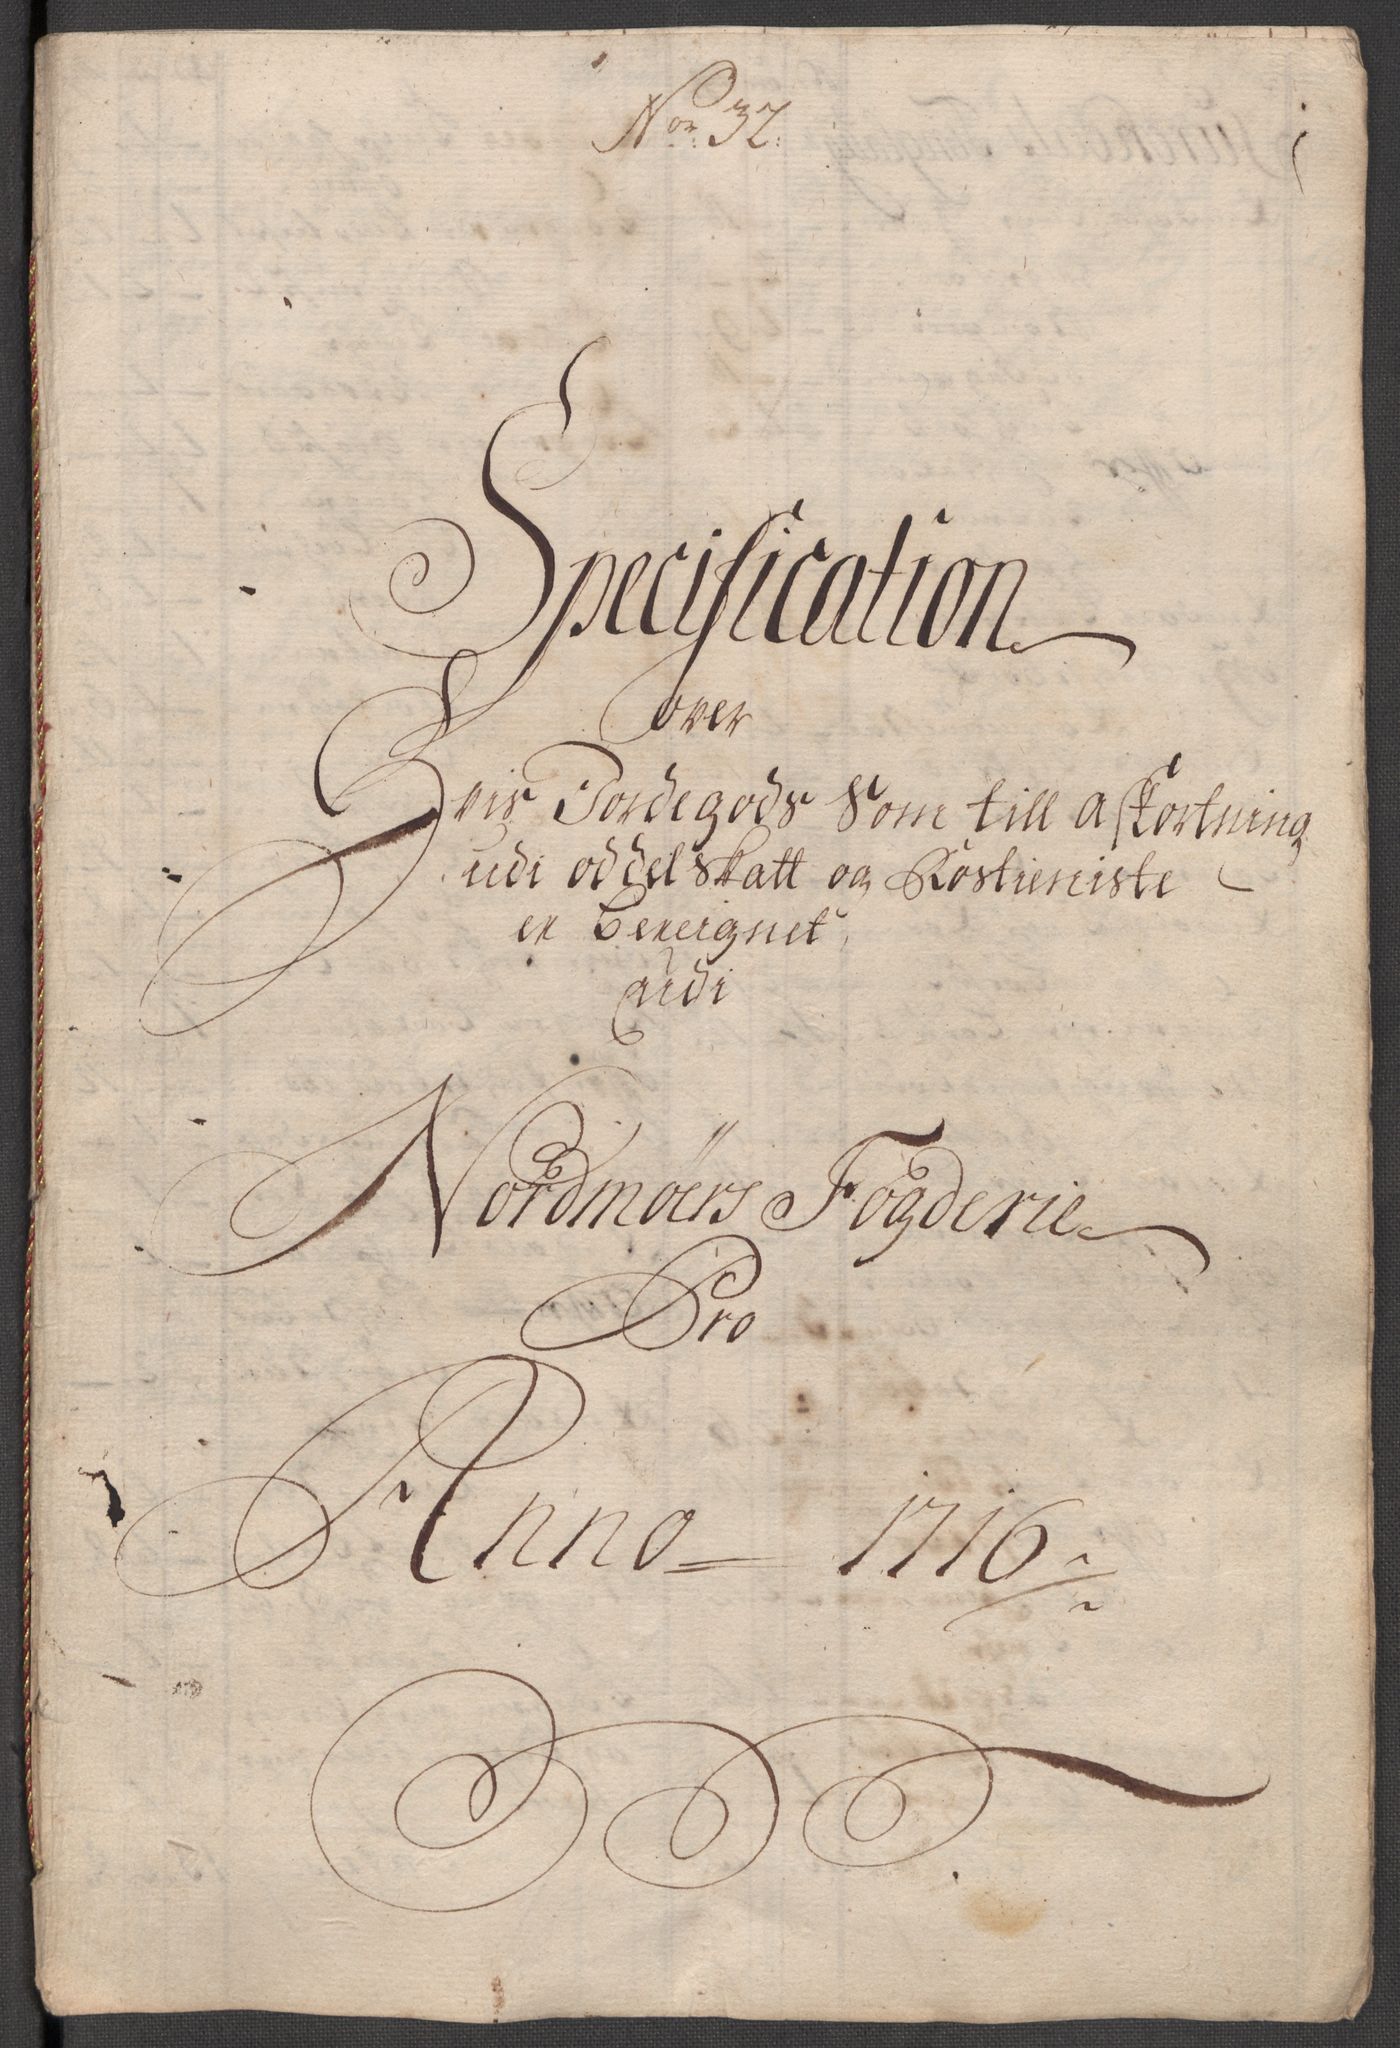 No: 32.
Specification
over
Hvis Jordegods Som till afkortning
udi oddelskatt og Rostieniste
er bereignet
udi
Nordmöers Fogderie
Pro
Anno 1716